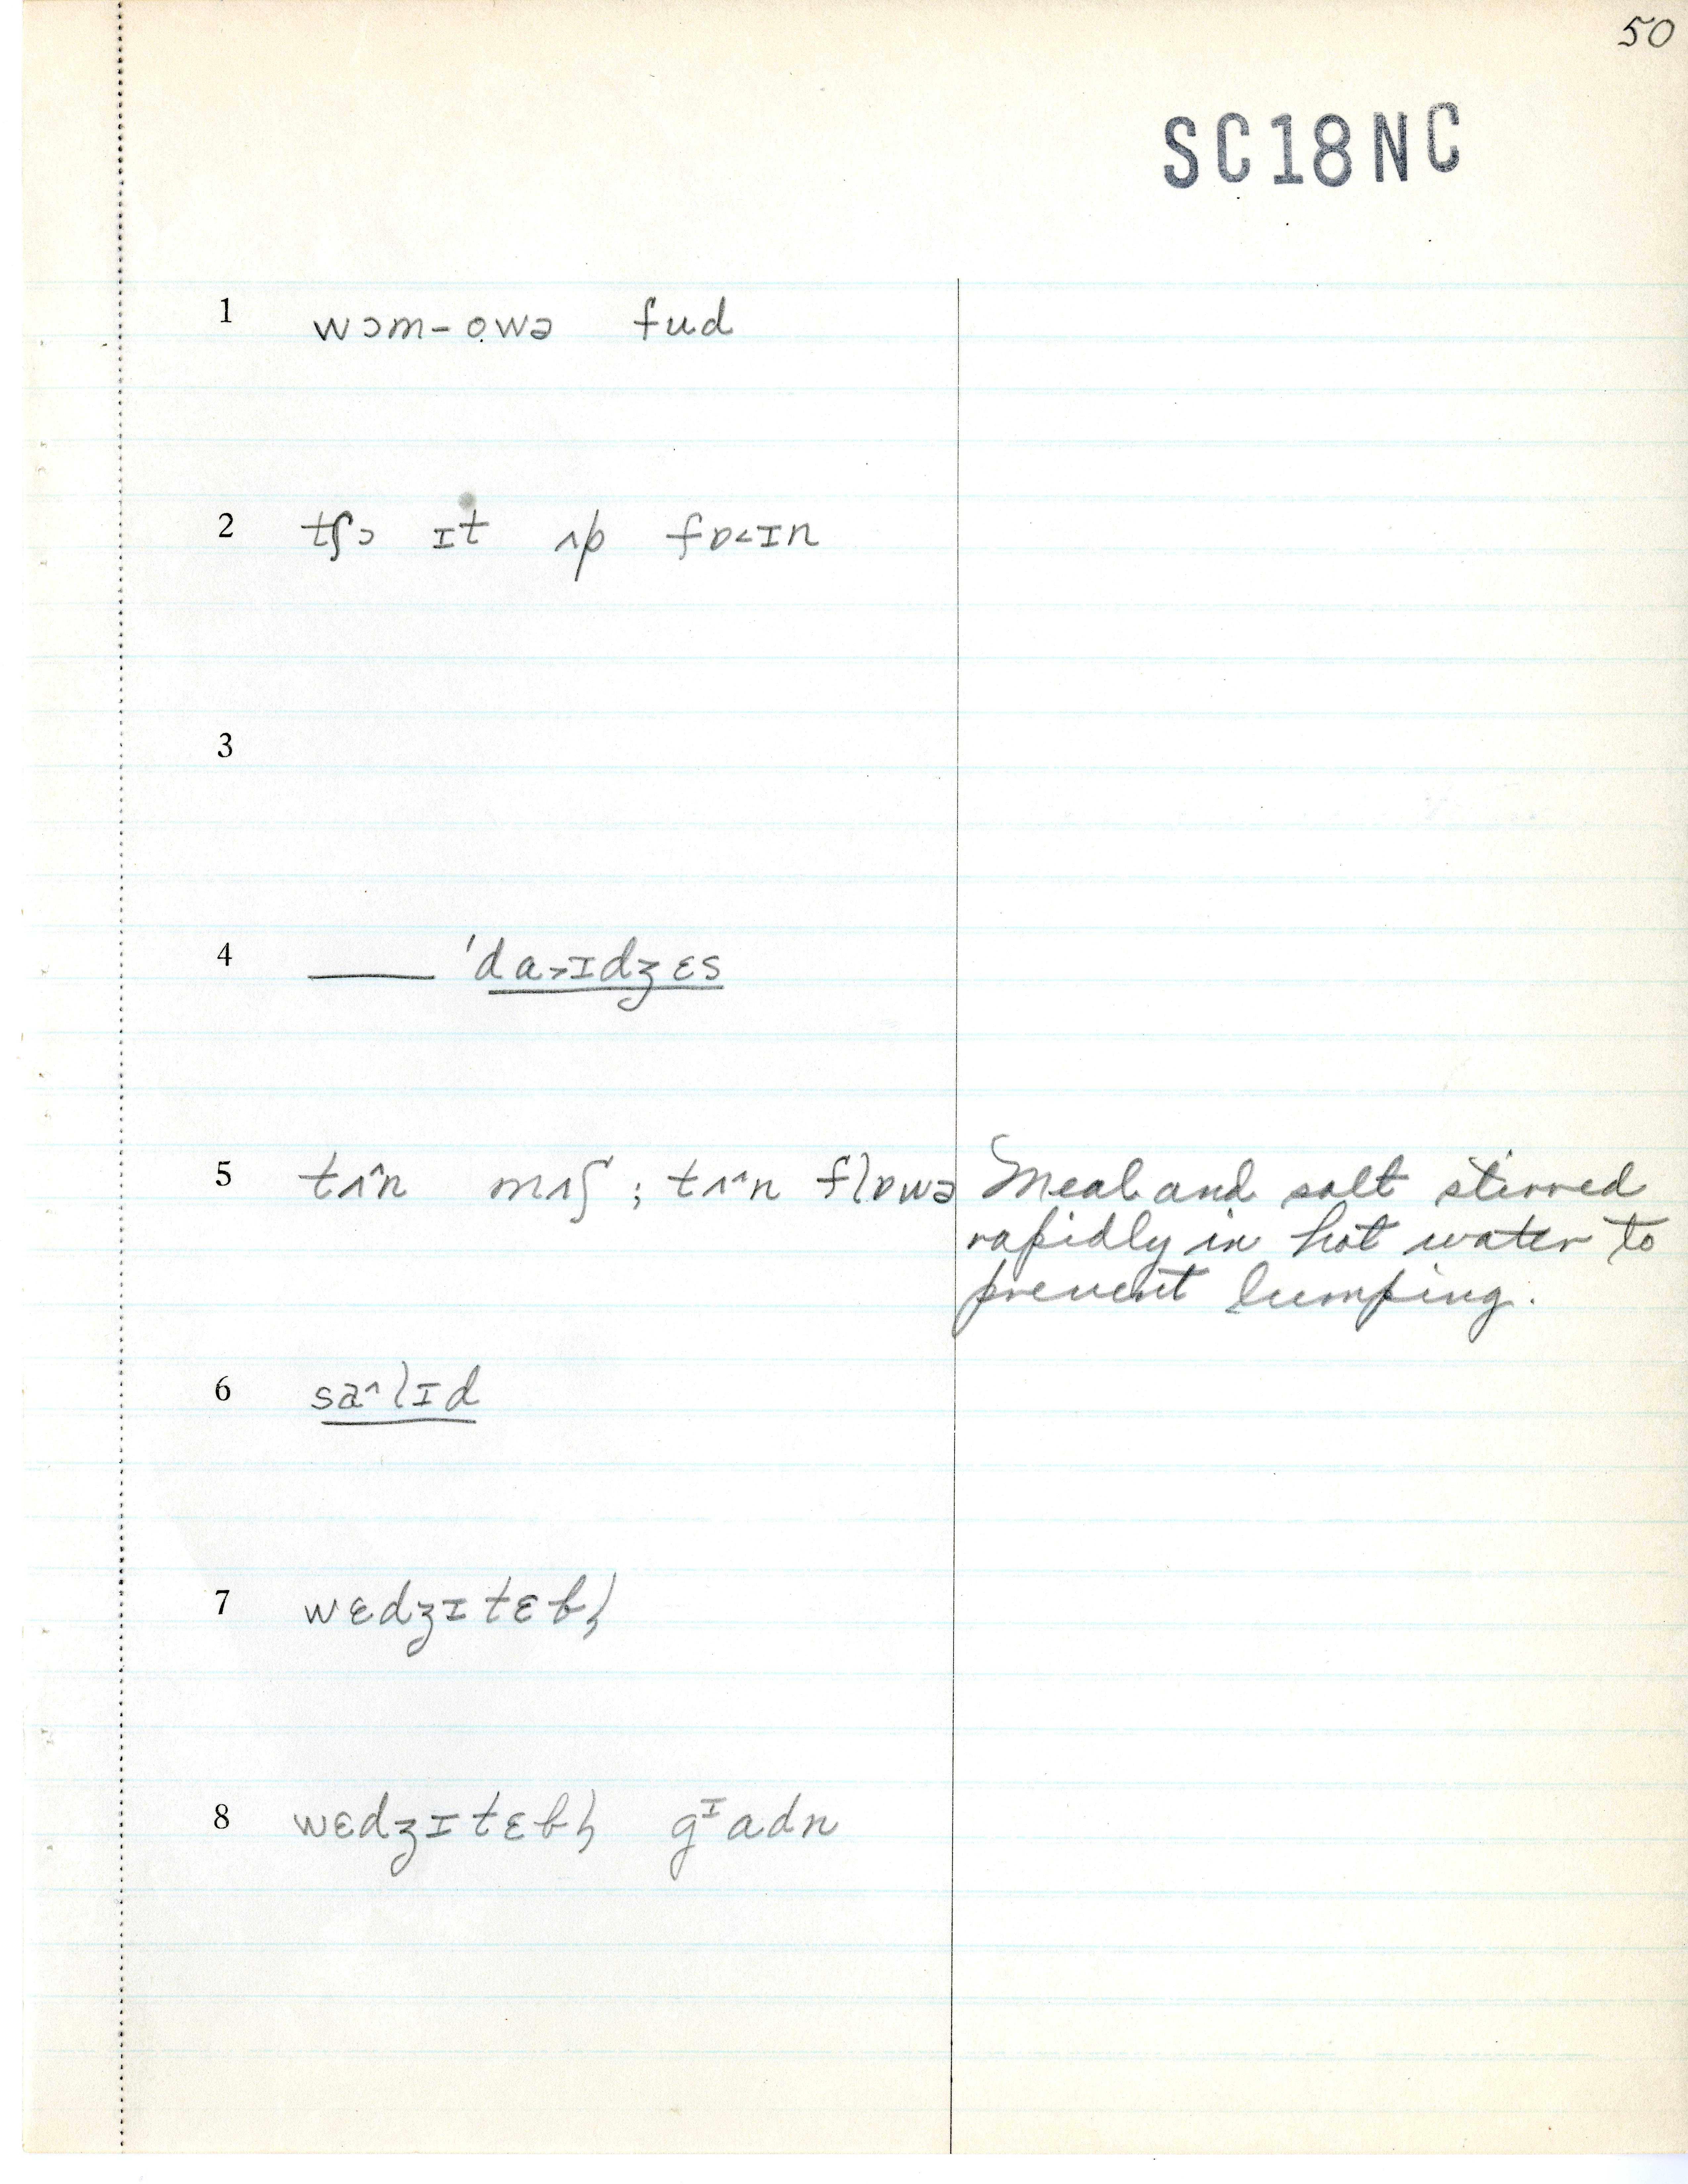 50
SC18NC
1 wɔm-o̞wə fud
2 tʃɔ ɪt ʌp fɒ˂ɪn
3
4 —— ˈda˃ɪdʒɛs
5 tʌ^n mʌʃ ; tʌ^n flɒwə Meal and salt stirred
rapidly in hot water to
prevent lumping.
6 sa^lɪd
7 wɛdʒɪtɛbl̩
8 wɛdʒɪtɛbl̩ gᶦadn